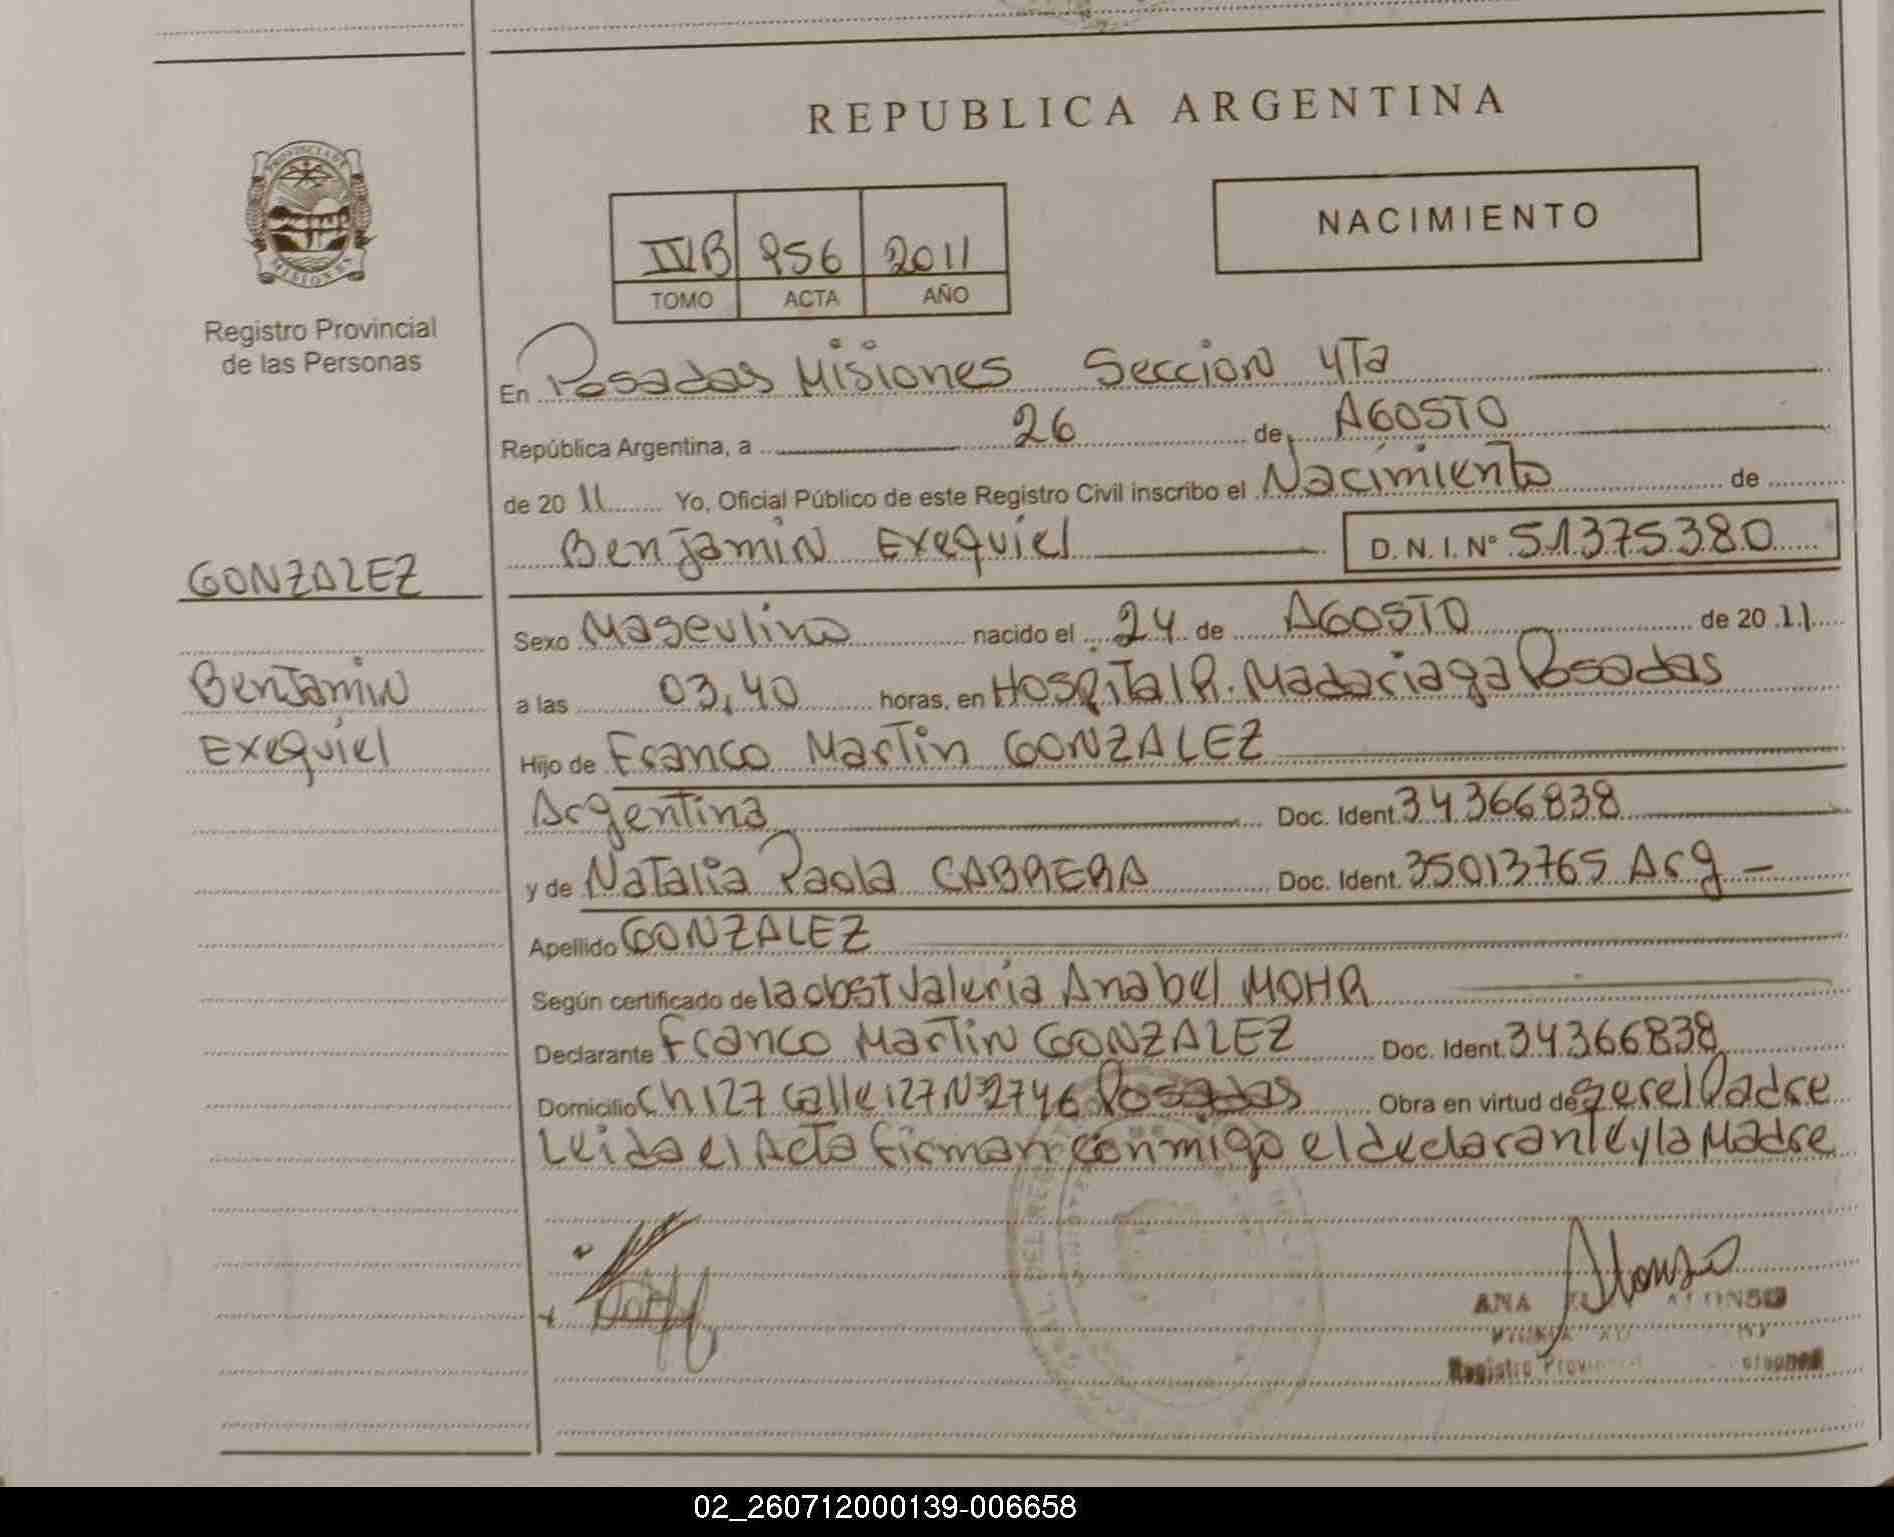 REPUBLICA ARGENTINA
NACIMIENTO
IVB 956 2011
TOMO ACTA AÑO
Registro Provincial
de las Personas
GONZALEZ
Benjamin
Exequiel
En Posadas Misiones Seccion 4Ta
República Argentina, a 26 de AGOSTO
de 2011 Yo, Oficial Público de este Registro Civil inscribo el Nacimiento de
Benjamin Exequiel D.N.I. Nº 51375380
Sexo Masculino nacido el 24 de AGOSTO de 2011
a las 03,40 horas, en Hospital R. Madariaga Posadas
Hijo de Franco Martin GONZALEZ
Argentina Doc. Ident. 34366838
y de Natalia Paola CABRERA Doc. Ident. 35013765 Arg -
Apellido GONZALEZ
Según certificado de la obst Valeria Anabel MOHR
Declarante Franco Martin GONZALEZ Doc. Ident. 34366838
Domicilio Ch 127 calle 127 Nº 2746 Posadas Obra en virtud de ser el Padre
Leida el Acta firman conmigo el declarante y la Madre
Alonso
ANA ALONSO
Registro
02_260712000139-006658